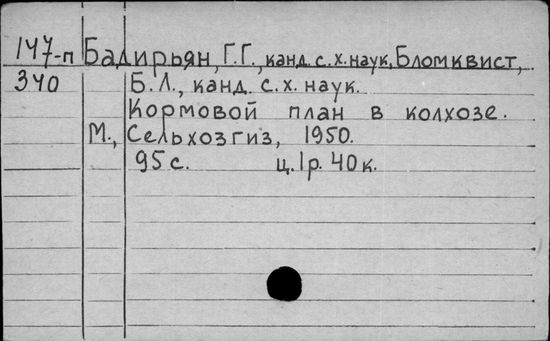 147-п Бадирьян, Г.Г., канд. с.х. наук, Бломквист,
340 Б.Л., канд. с.х. наук.
Кормовой план в колхозе.
М., Сельхозгиз, 1950.
95 с. ц. 1 р. 40 к.